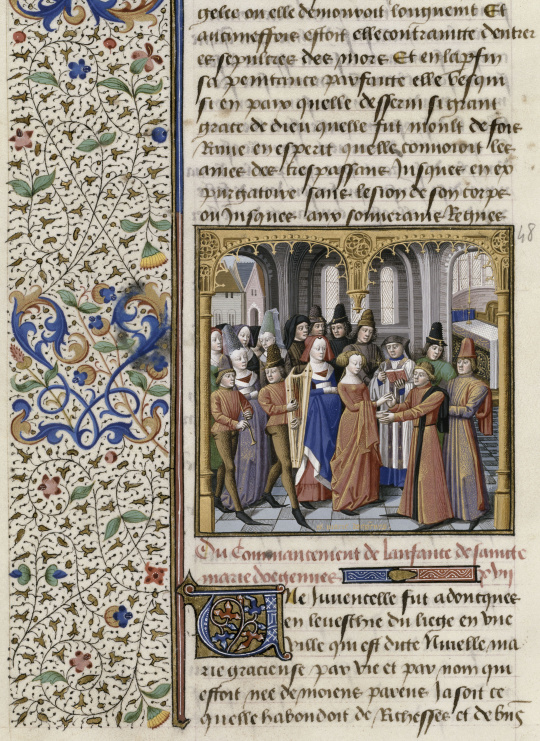 gelee ou elle demouroit longuement Et
aucuneffois estoit elle contrainte dentrer
es sepultres des mors Et en la p̄fin
sa penitance parfaicte elle vesqui
si en paix quelle desservi si grant
grace de dieu quelle fut moult de fois
Ravie en esperit quelle convoioit les
ames des trespassans Jusques en ex
purgatoire sans lesion de son corps
ou Jusques aux souverains Regnes
48
Du Commancement de lanfance de saincte
marie doegenies xvii
Une Iuuencelle fut adoncques
en leveschie du liege en une
ville qui est dicte Nivelle ma
rie gracieuse par vie et par nom qui
estoit nee de moiens parens Ja soit ce
quelle habondoit de Richesses et de biēs